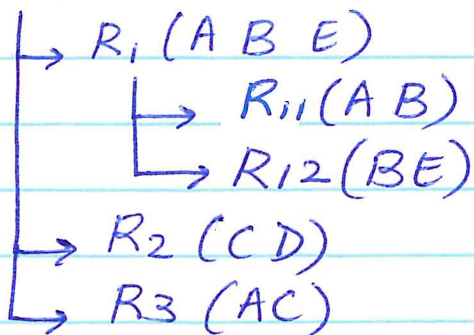 R1 (A B E)
R11 (A B)
R12 (BE)
R2 (CD)
R3 (AC)